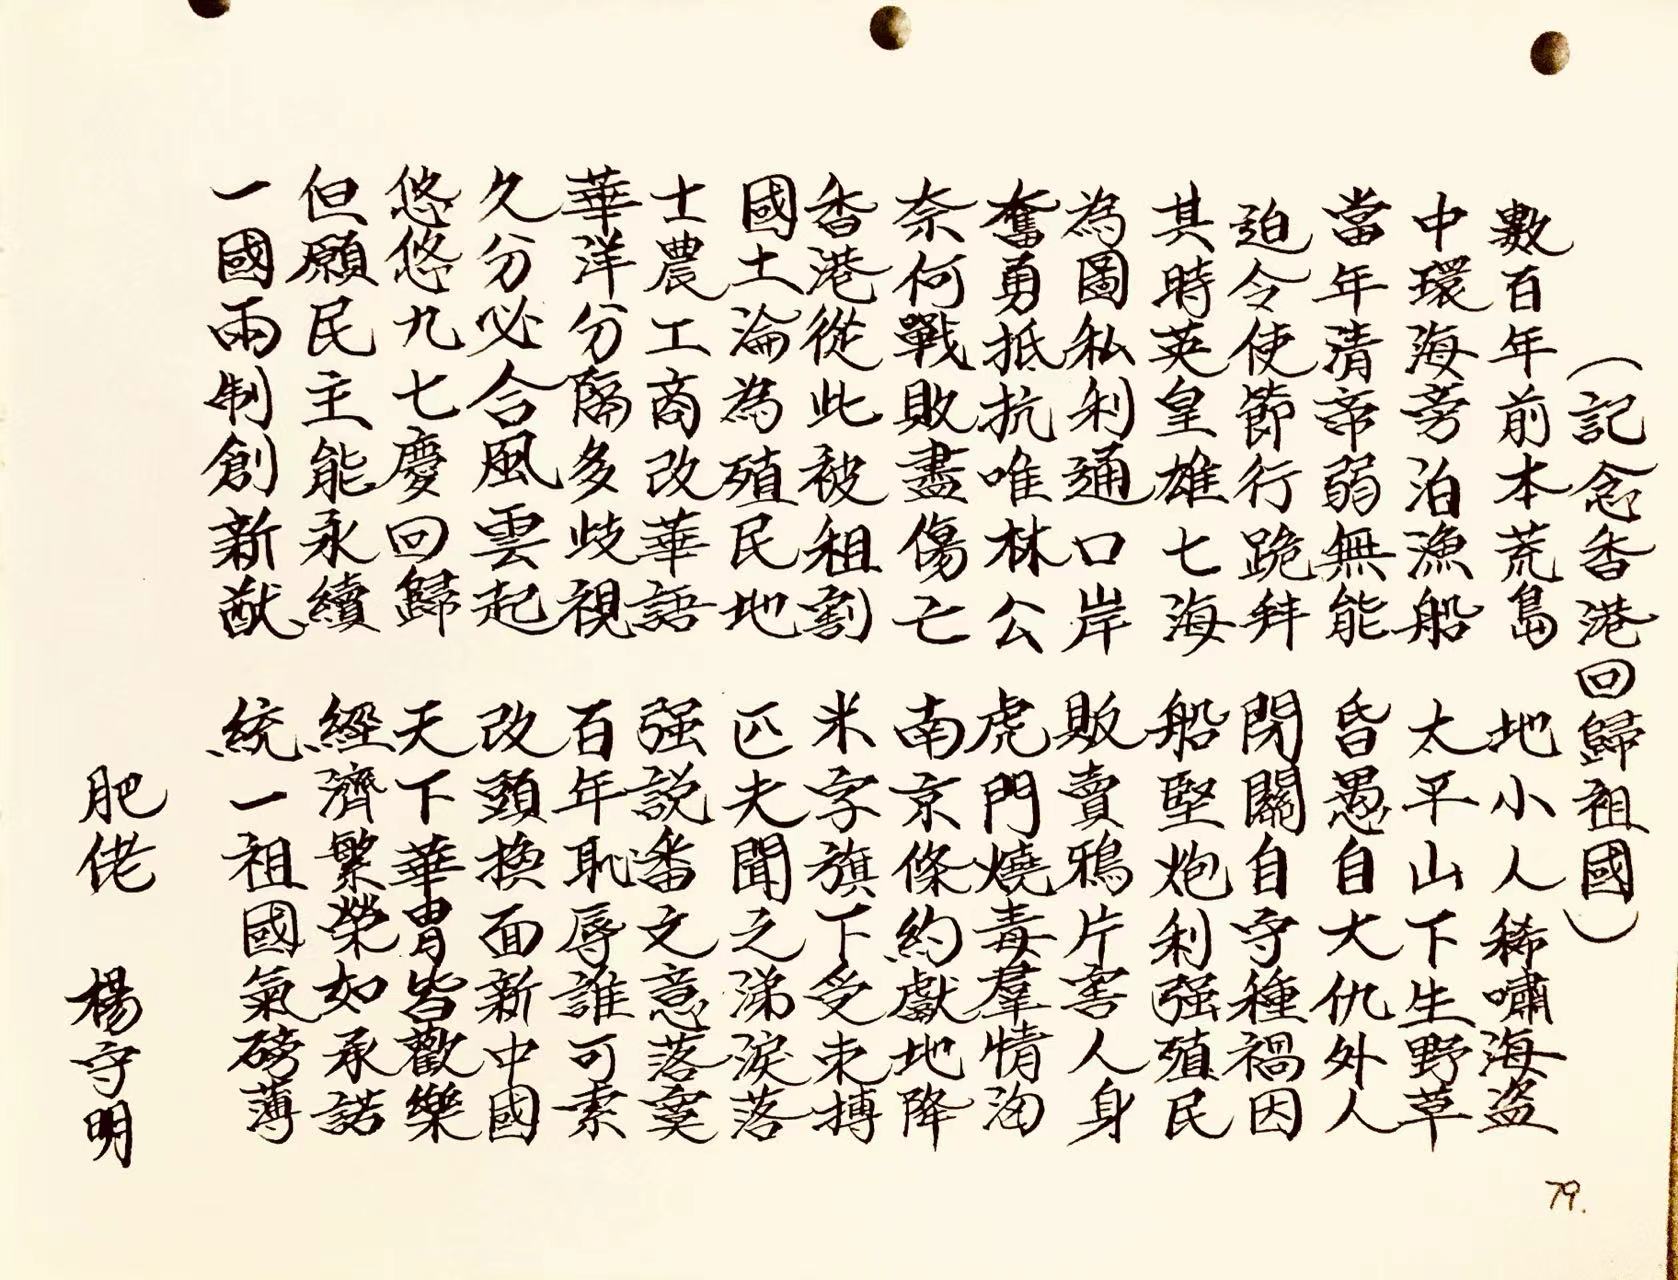 （記念香港回歸祖國）
數百年前本荒島　地小人稀嘯海盜
中環海旁泊漁船　太平山下生野草
當年清帝弱無能　昏愚自大仇外人
迫令使節行跪拜　閉關自守種禍因
其時英皇雄七海　船堅炮利强殖民
為圖私利通口岸　販賣鴉片害人身
奮勇抵抗唯林公　虎門燒毒羣情洶
奈何戰敗盡傷亡　南京條約獻地降
香港從此被租割　米字旗下受束搏
國土淪為殖民地　匹夫聞之涕淚落
士農工商改華語　强説番文意落寞
華洋分隔多歧視　百年恥辱誰可索
久分必合風雲起　改頭換面新中國
悠悠九七慶回歸　天下華胄皆歡樂
但願民主能永續　經濟繁榮如承諾
一國兩制創新猷　統一祖國氣磅薄
肥佬　楊守明
79.